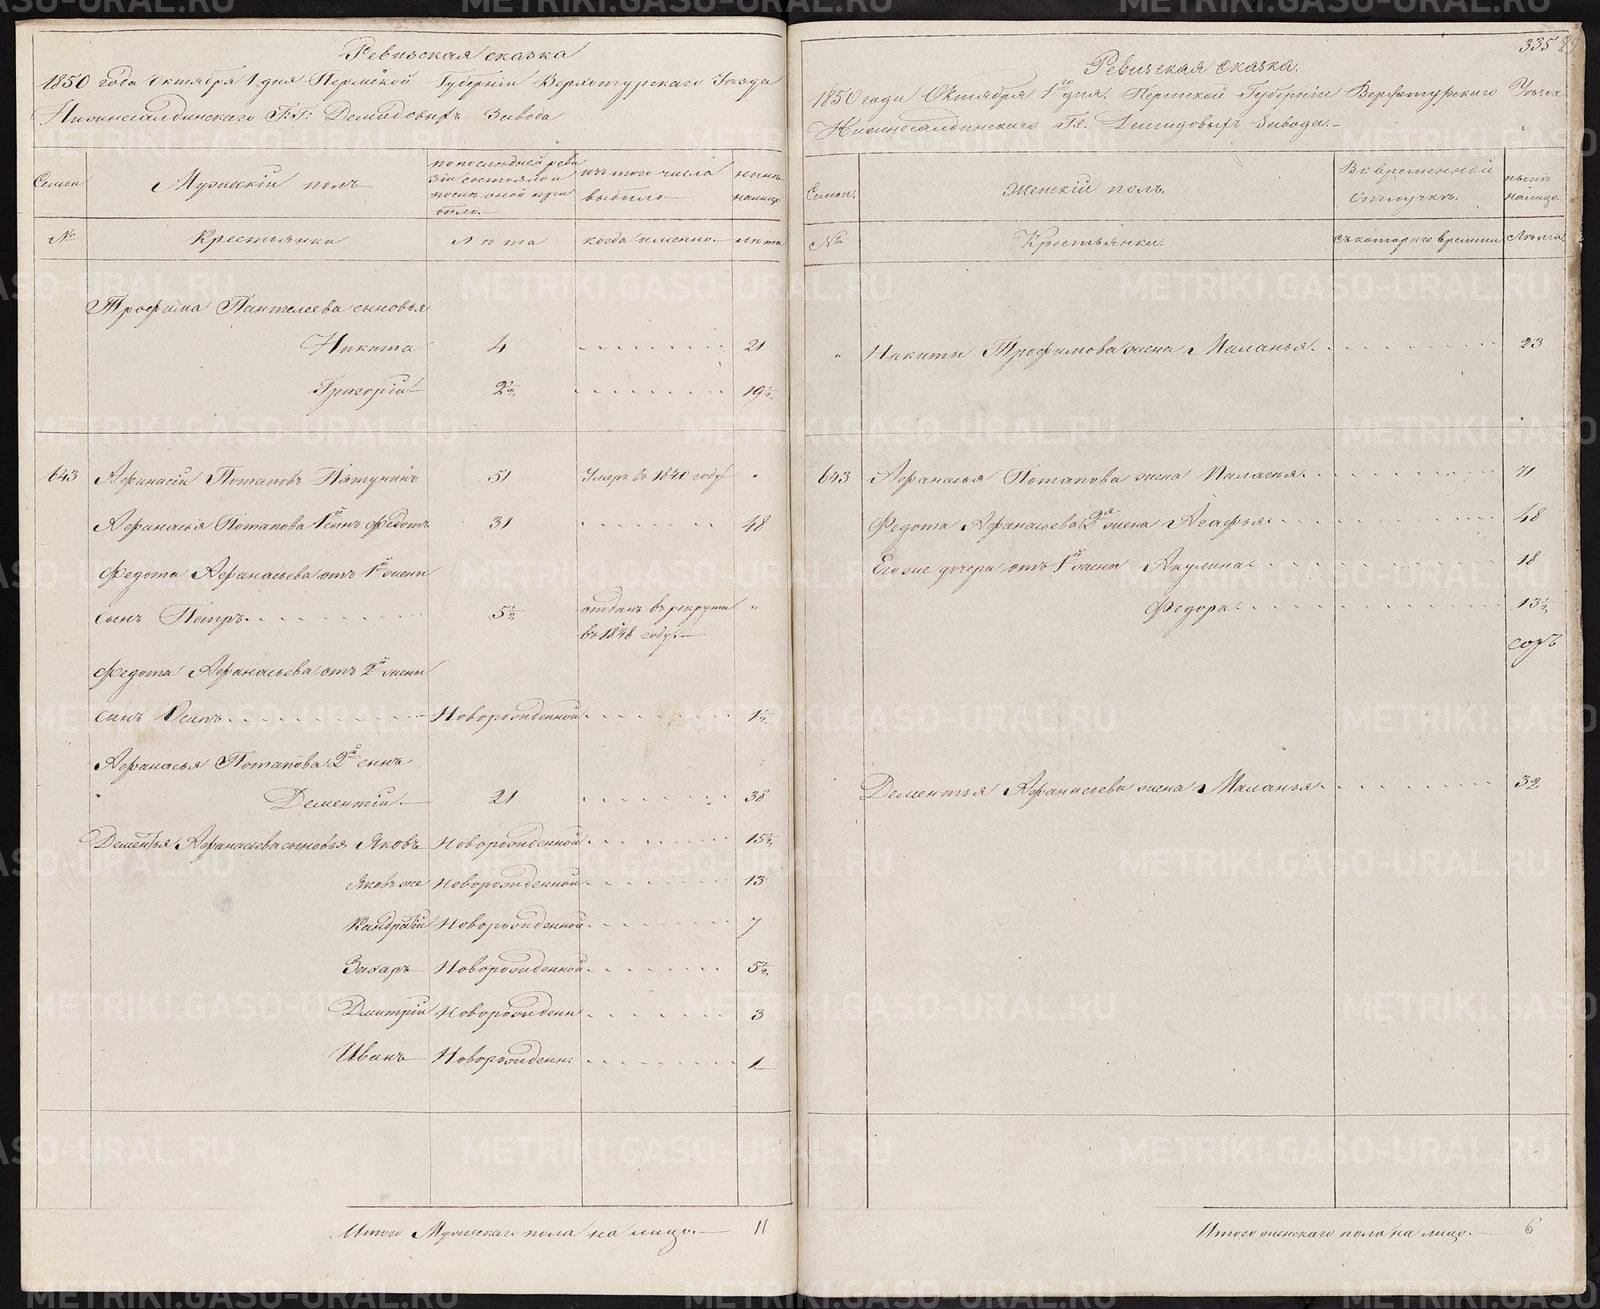 Ревизская сказка
1850 года Октября 1 дня Пермской Губернии Верхотурскаго Уезда
Нижнесалдинскаго Г.Г. Демидовыхъ Завода
Семьи
Мужескій полъ
по последней ревизіи состояло и после оной прибыло
изъ того числа выбыло
ныне налицо
№
Крестьяне
Лета
когда именно
лета
Трофима Пантелеева сыновья
Никита 4 21
Григорій 2½ 19½
643 Афанасій Потаповъ Пятунинъ 51 Умеръ въ 1841 году "
Афанасья Потапова 1й сынъ Федотъ 31 48
Федота Афанасьева отъ 1й жены
сынъ Петръ 5½ отданъ въ рекруты "
въ 1848 году
Федота Афанасьева отъ 2й жены
сынъ Осипъ Новорожденной 1½
Афанасья Потапова 2й сынъ
Дементій 21 38
Дементья Афанасьева сыновья Яковъ Новорожденной 15½
Яковъ же Новорожденной 13
Кандратій Новорожденной 7
Захаръ Новорожденной 5½
Дмитрій Новорожденн 3
Иванъ Новорожденн: 1
Итого Мужескаго пола на лицо 11
335
Ревизская сказка.
1850 года Октября 1го дня. Пермской Губерніи Верхотурскаго Уезда
Нижнесалдинскаго Гг. Демидовыхъ Завода.
Семьи.
Женскій полъ.
Во временной отлучке.
ныне налицо.
№
Крестьянки.
съ котораго времени
Лета
" Никиты Трофимова жена Маланья 23
643 Афанасья Потапова жена Палагея 71
Федота Афанасьева 2я жена Агафья 48
Его же дочери отъ 1й жены Акулина 18
Федора 13½
сор
Дементья Афанасьева жена Маланья 32
Итого женскаго пола на лицо 6
METRIKI.GASO-URAL.RU